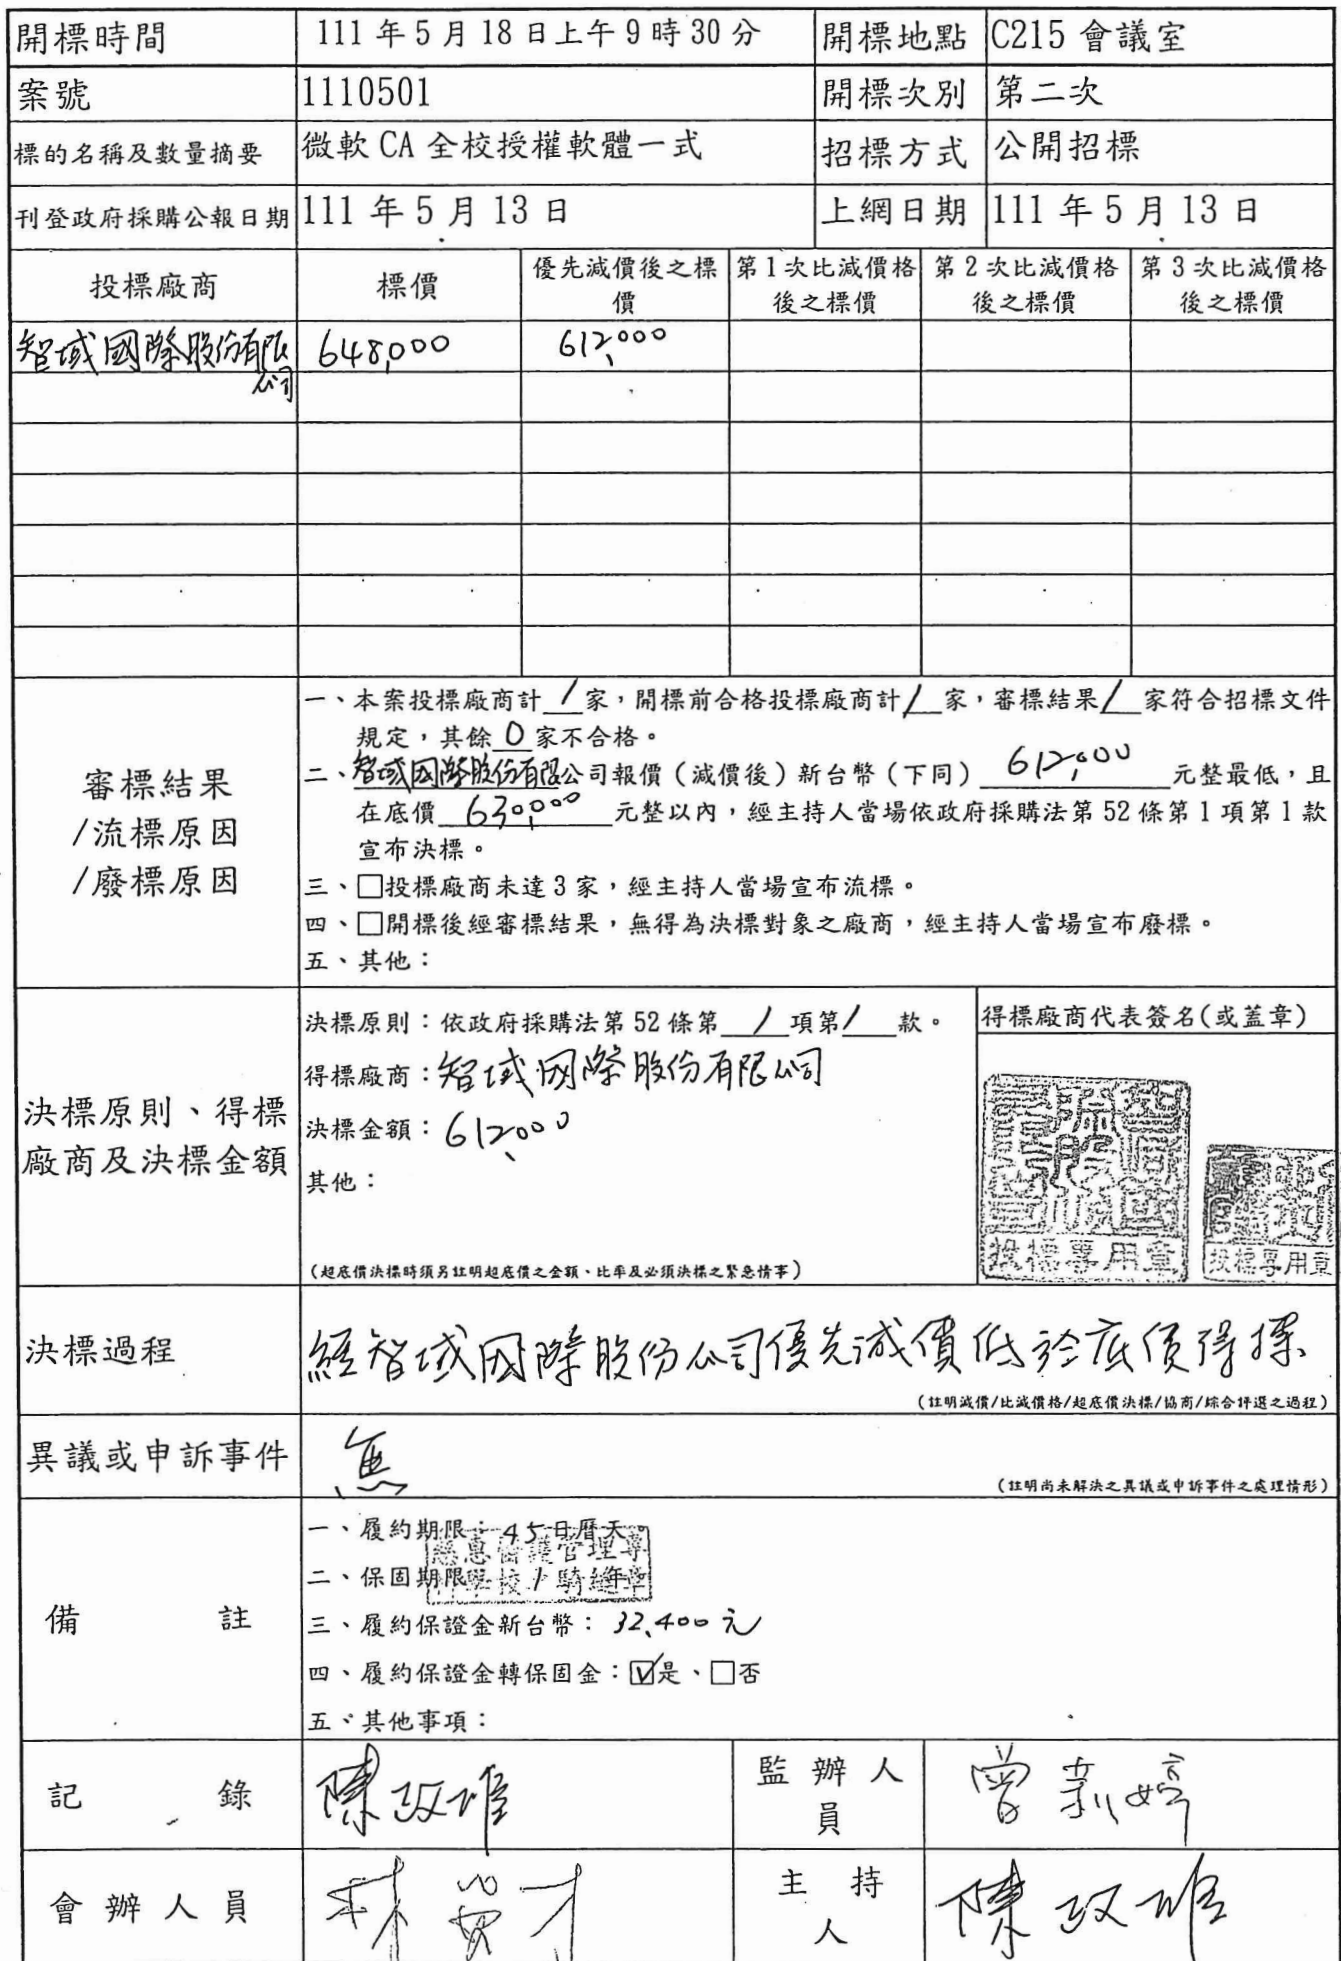 開標時間 111 年 5 月 18 日上午 9 時 30 分 開標地點 C215 會議室
案號 1110501 開標次別 第二次
標的名稱及數量摘要 微軟 CA 全校授權軟體一式 招標方式 公開招標
刊登政府採購公報日期 111 年 5 月 13 日 上網日期 111 年 5 月 13 日
投標廠商 標價 優先減價後之標價 第 1 次比減價格後之標價 第 2 次比減價格後之標價 第 3 次比減價格後之標價
智域國際股份有限公司 648,000 612,000
審標結果
/流標原因
/廢標原因
一、本案投標廠商計 1 家,開標前合格投標廠商計 1 家,審標結果 1 家符合招標文件
規定,其餘 0 家不合格。
二、智域國際股份有限公司報價(減價後)新台幣(下同) 612,000 元整最低,且
在底價 630,000 元整以內,經主持人當場依政府採購法第 52 條第 1 項第 1 款
宣布決標。
三、□投標廠商未達 3 家,經主持人當場宣布流標。
四、□開標後經審標結果,無得為決標對象之廠商,經主持人當場宣布廢標。
五、其他:
決標原則、得標
廠商及決標金額
決標原則:依政府採購法第 52 條第 1 項第 1 款。
得標廠商:智域國際股份有限公司
決標金額:612,000
其他:
(超底價決標時須另註明超底價之金額、比率及必須決標之緊急情事)
得標廠商代表簽名(或蓋章)
投標專用章
投標專用章
決標過程 經智域國際股份公司優先減價低於底價得標
(註明減價/比減價格/超底價決標/協商/綜合評選之過程)
異議或申訴事件 無
(註明尚未解決之異議或申訴事件之處理情形)
備 註
一、履約期限:45日曆天。
二、保固期限:1年
慈惠醫護管理專
科學校騎縫章
三、履約保證金新台幣:32,400元
四、履約保證金轉保固金:☑是、□否
五、其他事項:
記 錄 陳政雄 監辦人員 曾
會辦人員 林 主持人 陳政雄